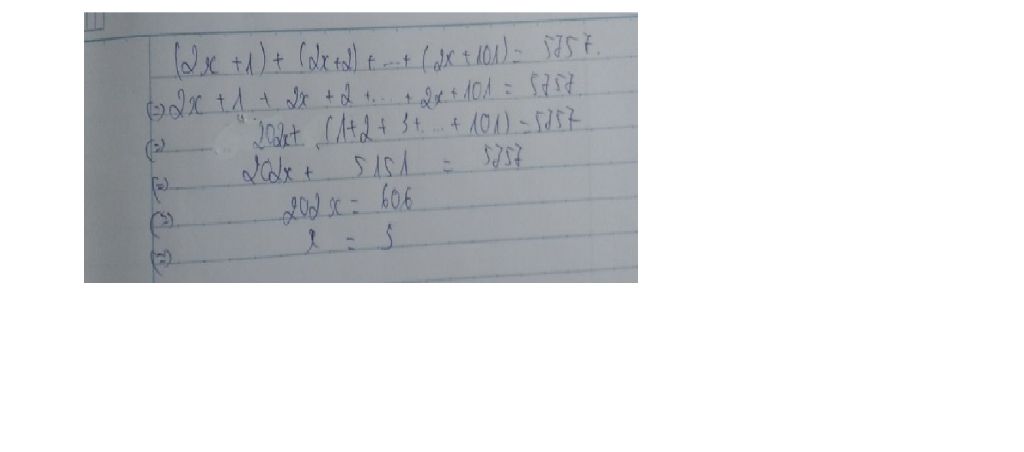 (2x + 1) + (2x+2) + ... + (2x + 101) = 5757.
(=) 2x + 1 + 2x + 2 + ... + 2x + 101 = 5757
(=) 202x + (1+2 + 3+ ... + 101) = 5757
(=) 202x + 5151 = 5757
(=) 202x = 606
(=) x = 3